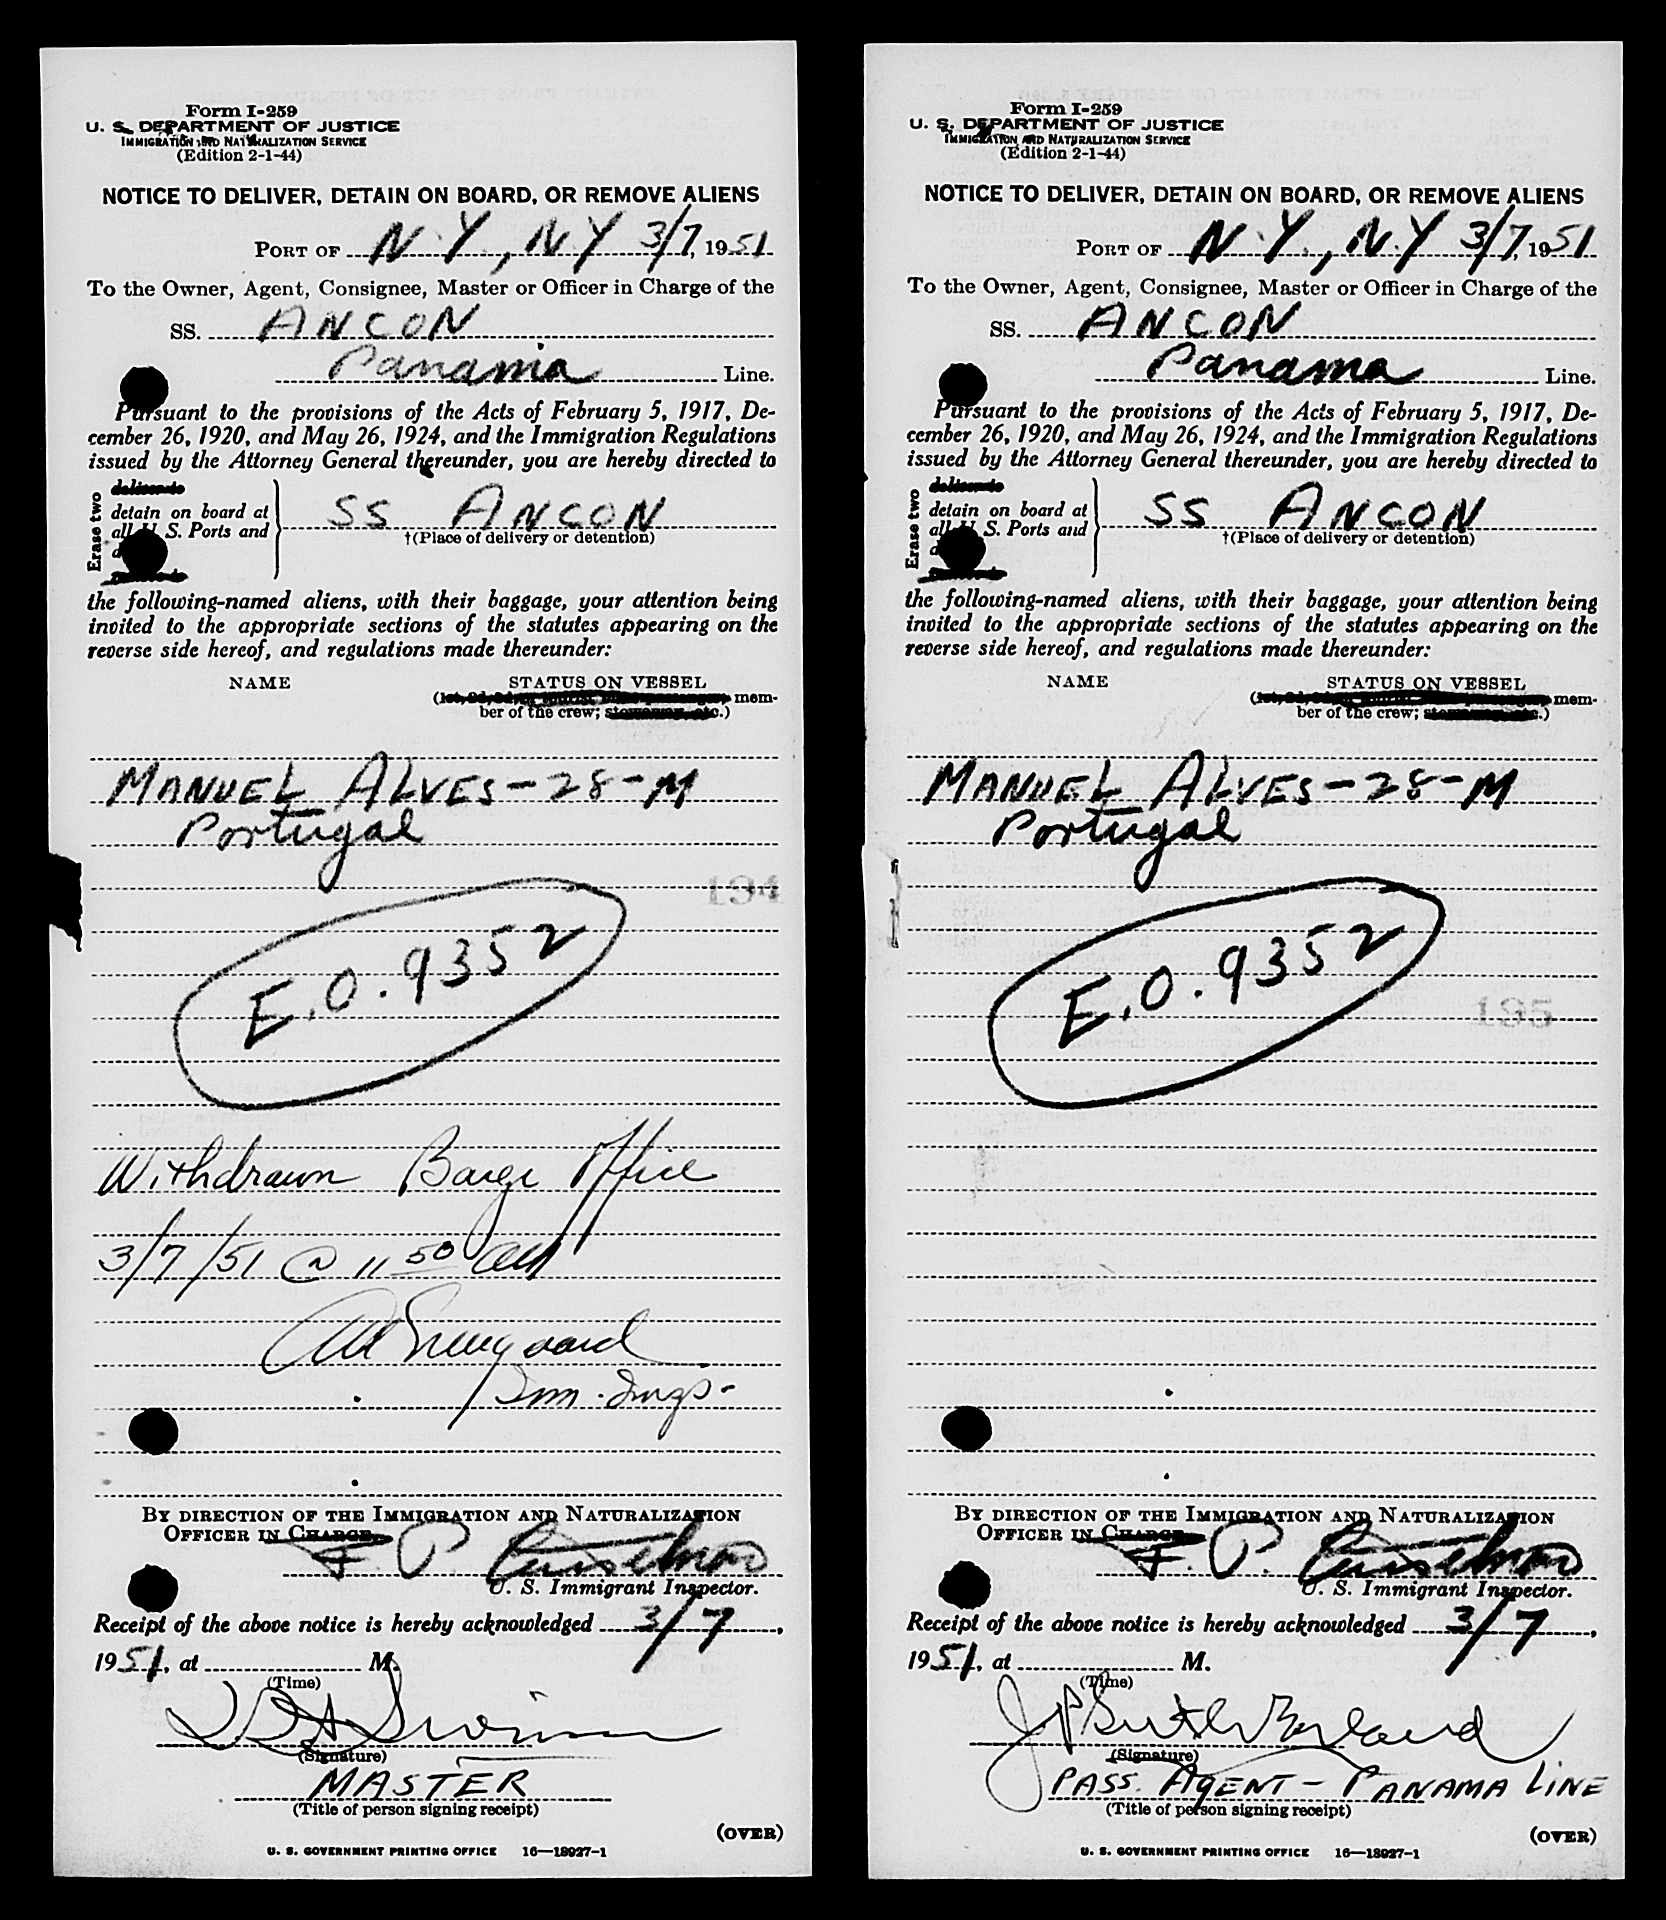 Form I-259
U. S. DEPARTMENT OF JUSTICE
IMMIGRATION AND NATURALIZATION SERVICE
(Edition 2-1-44)
NOTICE TO DELIVER, DETAIN ON BOARD, OR REMOVE ALIENS
PORT OF N.Y., N.Y 3/7, 1951
To the Owner, Agent, Consignee, Master or Officer in Charge of the
SS. ANCON
Panama Line.
Pursuant to the provisions of the Acts of February 5, 1917, De-
cember 26, 1920, and May 26, 1924, and the Immigration Regulations
issued by the Attorney General thereunder, you are hereby directed to
Erase two
deliver to
detain on board at
all U. S. Ports and
SS ANCON
†(Place of delivery or detention)
the following-named aliens, with their baggage, your attention being
invited to the appropriate sections of the statutes appearing on the
reverse side hereof, and regulations made thereunder:
NAME STATUS ON VESSEL
mem-
ber of the crew; .)
MANUEL ALVES-28-M
Portugal
194
E.O. 9352
Withdrawn Barge Office
3/7/51 @ 11 50 AM
Imm. Insp-
BY DIRECTION OF THE IMMIGRATION AND NATURALIZATION
OFFICER IN CHARGE.
F. P.
U. S. Immigrant Inspector.
Receipt of the above notice is hereby acknowledged 3/7,
1951, at M.
(Time)
(Signature)
MASTER
(Title of person signing receipt)
(OVER)
U. S. GOVERNMENT PRINTING OFFICE 16—18927-1
Form I-259
U. S. DEPARTMENT OF JUSTICE
IMMIGRATION AND NATURALIZATION SERVICE
(Edition 2-1-44)
NOTICE TO DELIVER, DETAIN ON BOARD, OR REMOVE ALIENS
PORT OF N.Y., N.Y 3/7, 1951
To the Owner, Agent, Consignee, Master or Officer in Charge of the
SS. ANCON
Panama Line.
Pursuant to the provisions of the Acts of February 5, 1917, De-
cember 26, 1920, and May 26, 1924, and the Immigration Regulations
issued by the Attorney General thereunder, you are hereby directed to
Erase two
deliver to
detain on board at
all U. S. Ports and
SS ANCON
†(Place of delivery or detention)
the following-named aliens, with their baggage, your attention being
invited to the appropriate sections of the statutes appearing on the
reverse side hereof, and regulations made thereunder:
NAME STATUS ON VESSEL
mem-
ber of the crew; .)
MANUEL ALVES-28-M
Portugal
E.O. 9352
195
BY DIRECTION OF THE IMMIGRATION AND NATURALIZATION
OFFICER IN CHARGE.
F. P.
U. S. Immigrant Inspector.
Receipt of the above notice is hereby acknowledged 3/7,
1951, at M.
(Time)
(Signature)
PASS. AGENT - PANAMA LINE
(Title of person signing receipt)
(OVER)
U. S. GOVERNMENT PRINTING OFFICE 16—18927-1